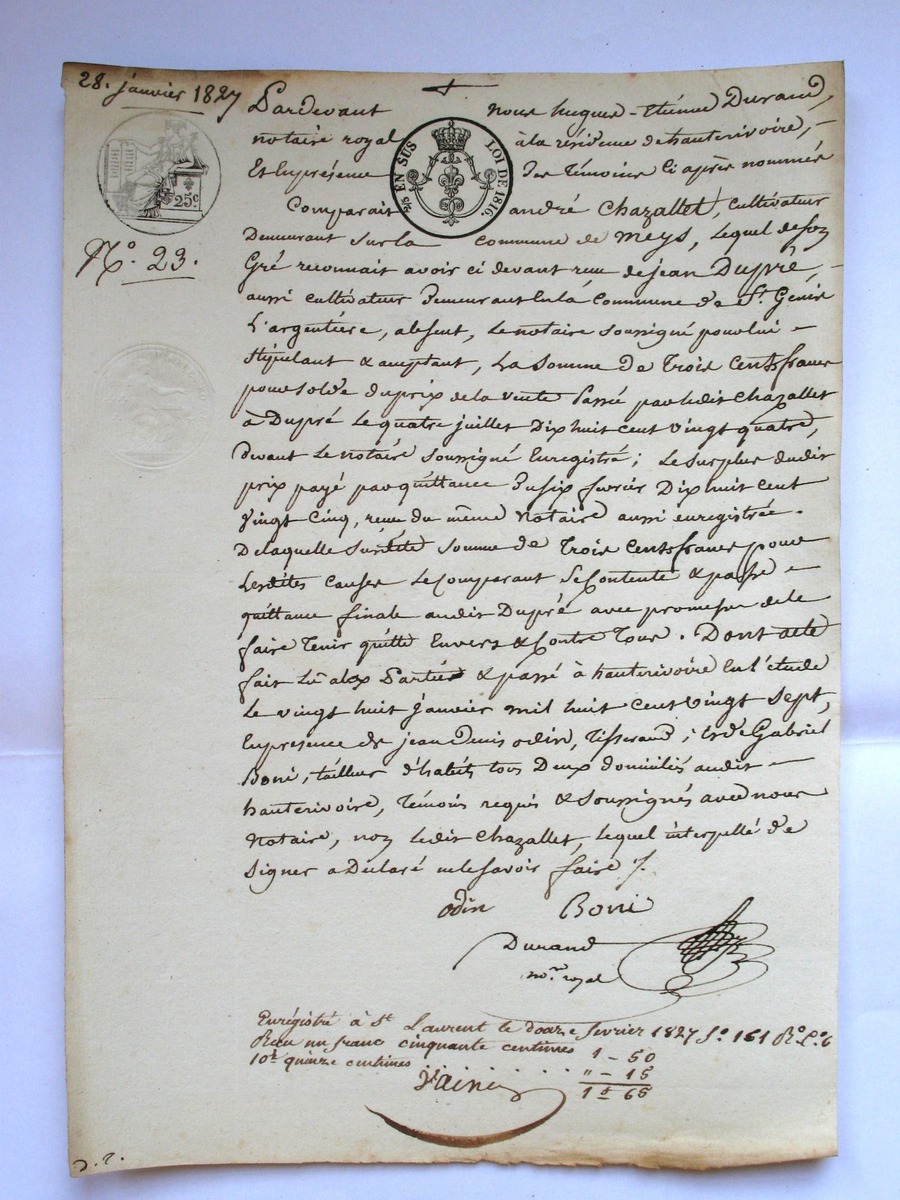 28. janvier 1827
Pardevant nous hugues-étienne Durand,
notaire royal à la résidence de hauterivoire,
Et en présence des Témoins ci après nommés
25c
2/5 EN SUS LOI DE 1816
Comparait andré Chazallet, cultivateur
Demeurant sur la commune de Meys, lequel de son
N.o 23.
Gré reconnait avoir ci devant reçu de jean Dupré,
aussi cultivateur demeurant en la Commune de St. Génis
L'argentière, absent, Le notaire soussigné pour lui
stipulant & acceptant, La somme de Trois Cents francs
pour solde du prix de la vente Passé par ledit Chazallet
à Dupré Le quatre juillet Dix huit cent vingt quatre,
devant Le notaire soussigné Enregistré; Le surplus dudit
prix payé par quittance du six février Dix huit cent
vingt Cinq, reçue du même Notaire aussi enregistrée.
De laquelle susdite somme de Trois Cents francs pour
Lesdites causes Le Comparant se Contente & passe
quittance finale audit Dupré avec promesse de le
faire Tenir quitte Envers & Contre Tous. Dont acte
fait Lu aux Parties & passé à hauterivoire En l'étude
Le vingt huit janvier mil huit Cent vingt sept,
En présence de jean Denis odin, Tisserand, & de Gabriel
Boni, tailleur d'habits tous Deux domiciliés audit
hauterivoire, Témoins requis & soussignés avec nous
Notaire, non Ledit Chazallet, lequel interpellé de
signer a Déclaré ne le savoir faire /.
odin Boni
Durand
no.re royal
Enrégistré à St Laurent le douze fevrier 1827 fo 161 Ro Co 6
Reçu un franc cinquante centimes 1 - 50
10e quinze centimes . . . . . . . " - 15
1f 65
D. D.